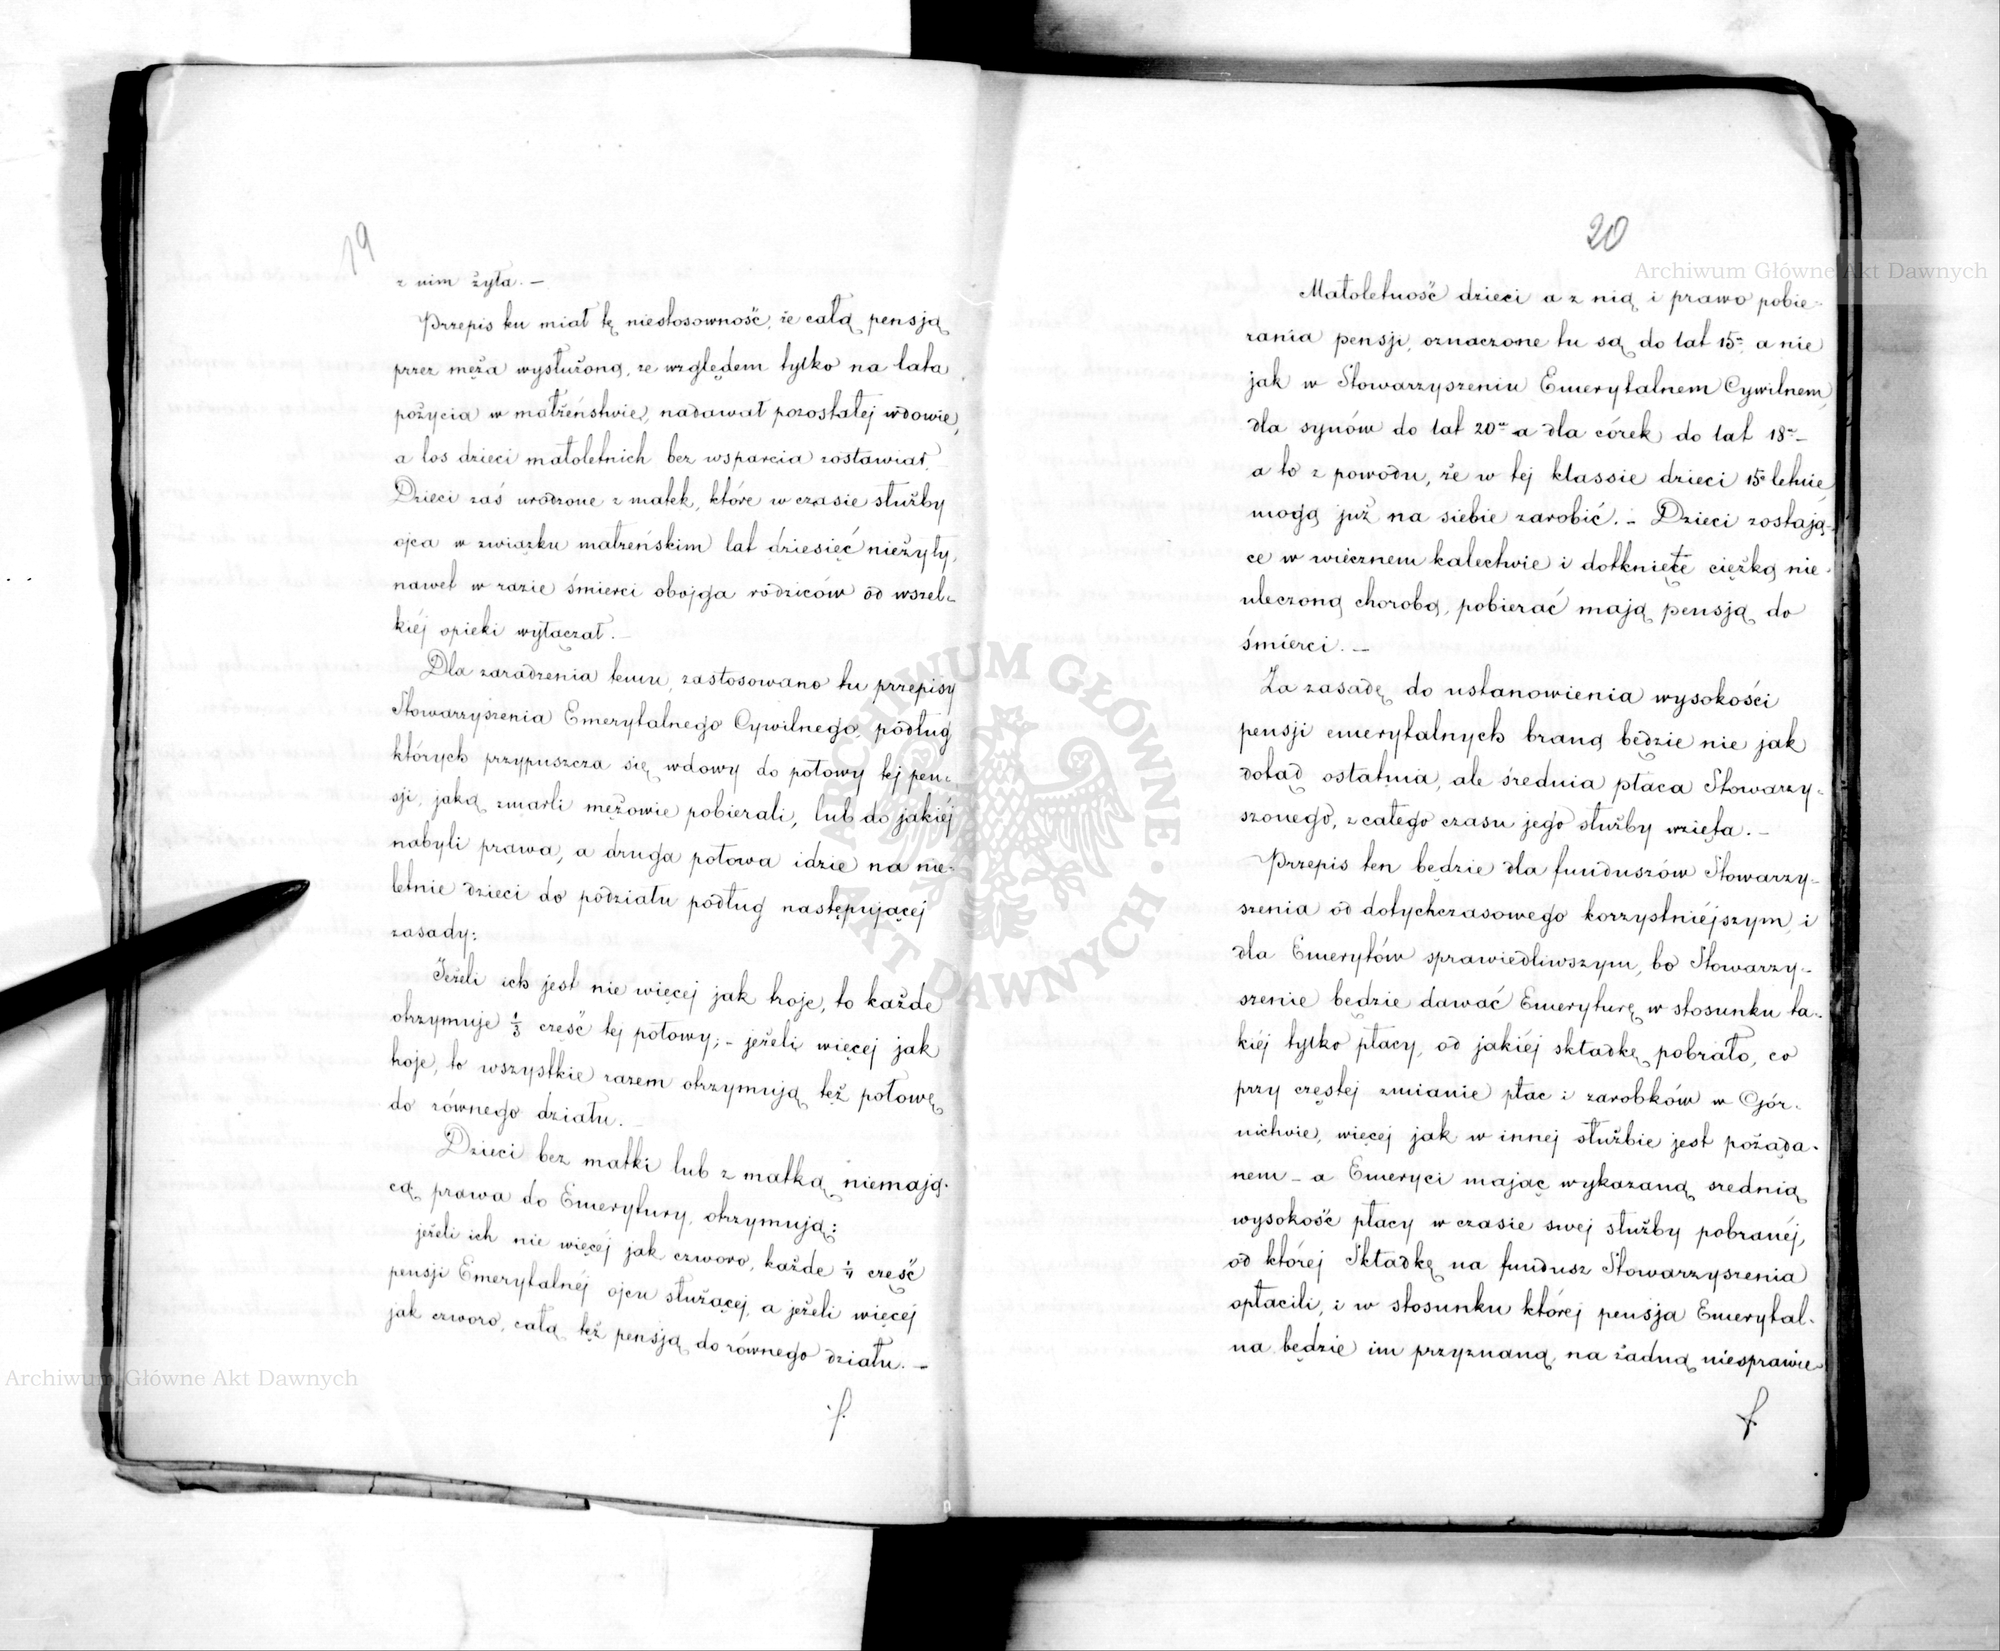 19
z nim żyła. —
Przepis ku miał tę niestosowność, że całą pensją
przez męża wysłużoną, ze względem tylko na lata
pożycia w małżeństwie, nadawał pozostałej wdowie,
a los dzieci małoletnich bez wsparcia zostawiał.
Dzieci zaś urodzone z matek, które w czasie służby
ojca w związku małżeńskim lat dziesięć nieżyły,
nawet w razie śmierci obojga rodziców od wszel-
kiéj opieki wyłączał. —
Dla zaradzenia temu, zastosowano tu przepisy
Stowarzyszenia Emerytalnego Cywilnego, podług
których przypuszcza się wdowy do połowy tej pen-
sji, jaką zmarli mężowie pobierali, lub do jakiéj
nabyli prawa, a druga połowa idzie na nie-
letnie dzieci do podziału podług następującej
zasady:
Jeżeli ich jest nie więcej jak troje, to każde
otrzymuje 1/3 część tej połowy; – jeżeli więcej jak
troje, to wszystkie razem otrzymują też połowę
do równego działu. —
Dzieci bez matki lub z matką niemają-
cą prawa do Emerytury, otrzymują:
jeżeli ich nie więcéj jak czworo, każde 1/4 część
pensji Emerytalnéj ojcu służącej, a jeżeli więcej
jak czworo, całą też pensją do równego działu. —
20
Małoletność dzieci a z nią i prawo pobie-
rania pensji, oznaczone tu są do lat 15, a nie
jak w Stowarzyszeniu Emerytalnem Cywilnem,
dla synów do lat 20 a dla córek do lat 18 –
a to z powodu, że w tej klassie dzieci 15 letnie
mogą już na siebie zarobić. – Dzieci zostają-
ce w wiecznem kalectwie i dotknięte ciężką nie-
uleczoną chorobą, pobierać mają pensją do
śmierci. —
Za zasadę do ustanowienia wysokości
pensji emerytalnych braną będzie nie jak
dotąd ostatnia, ale średnia płaca Stowarzy-
szonego, z całego czasu jego służby wzięta. —
Przepis ten będzie dla funduszów Stowarzy-
szenia od dotychczasowego korzystniéjszym, i
dla Emerytów sprawiedliwszym, bo Stowarzy-
szenie będzie dawać Emeryturę w stosunku ta-
kiéj tylko płacy, od jakiéj składkę pobrało, co
przy częstej zmianie płac i zarobków w Gór-
nictwie, więcej jak w innej służbie jest pożąda-
nem – a Emeryci mając wykazaną średnią
wysokość płacy w czasie swej służby pobranéj,
od której Składkę na fundusz Stowarzyszenia
opłacili, i w stosunku której pensja Emerytal-
na będzie im przyznaną, na żadną niesprawie-
Archiwum Główne Akt Dawnych
Archiwum Główne Akt Dawnych
ARCHIWUM GŁÓWNE · AKT DAWNYCH ·